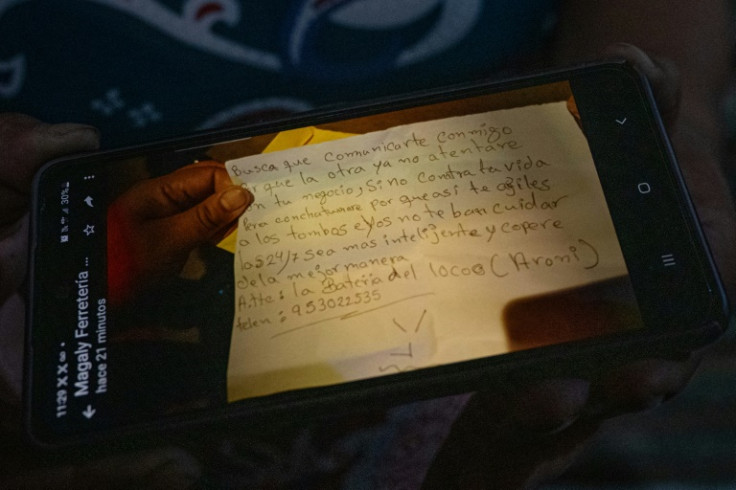 11:29 X X
30%
Magaly Ferretería ...
hace 21 minutos
Busca que comunicarte conmigo
que la otra ya no atentare
tu negocio, sino contra tu vida
por que asi te
a los tombos ellos no te ban cuidar
las 24/7 sea mas intelijente y copere
dela mejor manera
Atte: la Bateria del locos (Aroni)
telen: 953022535